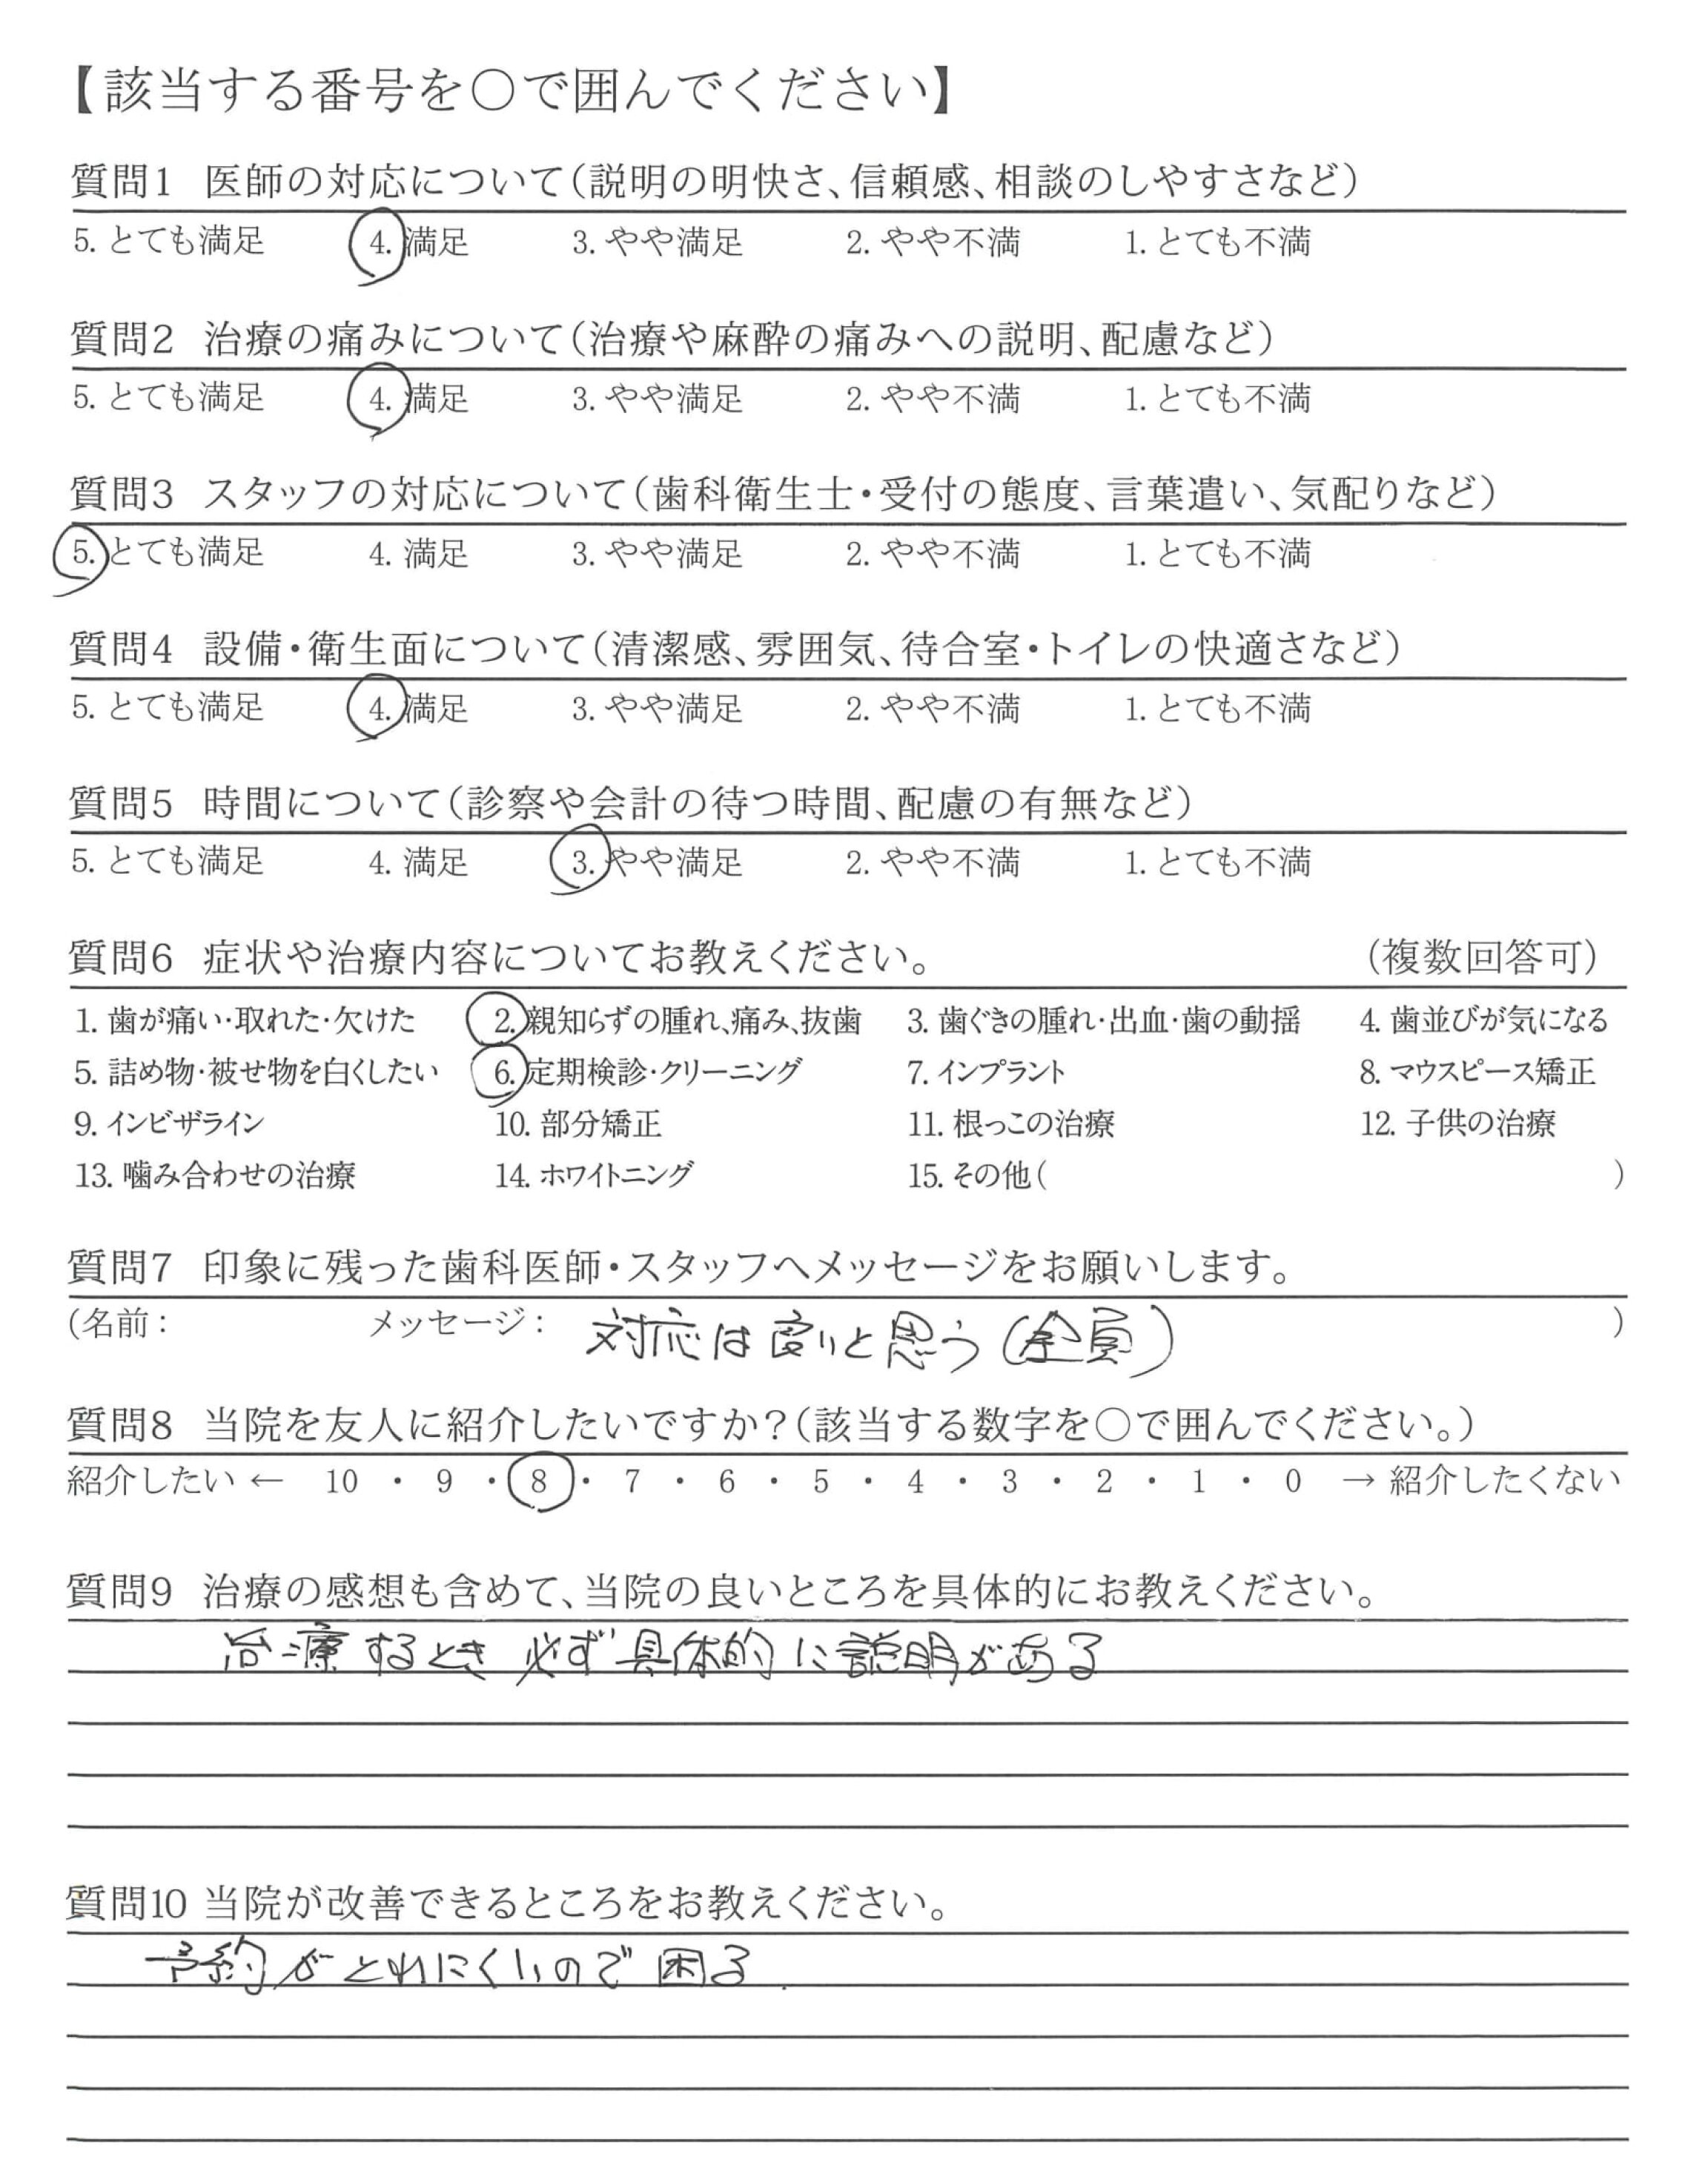 【該当する番号を〇で囲んでください】
質問1 医師の対応について(説明の明快さ、信頼感、相談のしやすさなど)
5. とても満足 4. 満足 3. やや満足 2. やや不満 1. とても不満
質問2 治療の痛みについて(治療や麻酔の痛みへの説明、配慮など)
5. とても満足 4. 満足 3. やや満足 2. やや不満 1. とても不満
質問3 スタッフの対応について(歯科衛生士・受付の態度、言葉遣い、気配りなど)
5. とても満足 4. 満足 3. やや満足 2. やや不満 1. とても不満
質問4 設備・衛生面について(清潔感、雰囲気、待合室・トイレの快適さなど)
5. とても満足 4. 満足 3. やや満足 2. やや不満 1. とても不満
質問5 時間について(診察や会計の待つ時間、配慮の有無など)
5. とても満足 4. 満足 3. やや満足 2. やや不満 1. とても不満
質問6 症状や治療内容についてお教えください。 (複数回答可)
1. 歯が痛い・取れた・欠けた 2. 親知らずの腫れ、痛み、抜歯 3. 歯ぐきの腫れ・出血・歯の動揺 4. 歯並びが気になる
5. 詰め物・被せ物を白くしたい 6. 定期検診・クリーニング 7. インプラント 8. マウスピース矯正
9. インビザライン 10. 部分矯正 11. 根っこの治療 12. 子供の治療
13. 噛み合わせの治療 14. ホワイトニング 15. その他( )
質問7 印象に残った歯科医師・スタッフへメッセージをお願いします。
(名前: メッセージ: 対応は良いと思う(全員) )
質問8 当院を友人に紹介したいですか?(該当する数字を〇で囲んでください。)
紹介したい ← 10 ・ 9 ・ 8 ・ 7 ・ 6 ・ 5 ・ 4 ・ 3 ・ 2 ・ 1 ・ 0 → 紹介したくない
質問9 治療の感想も含めて、当院の良いところを具体的にお教えください。
治療するとき必ず具体的に説明がある
質問10 当院が改善できるところをお教えください。
予約がとれにくいので困る.